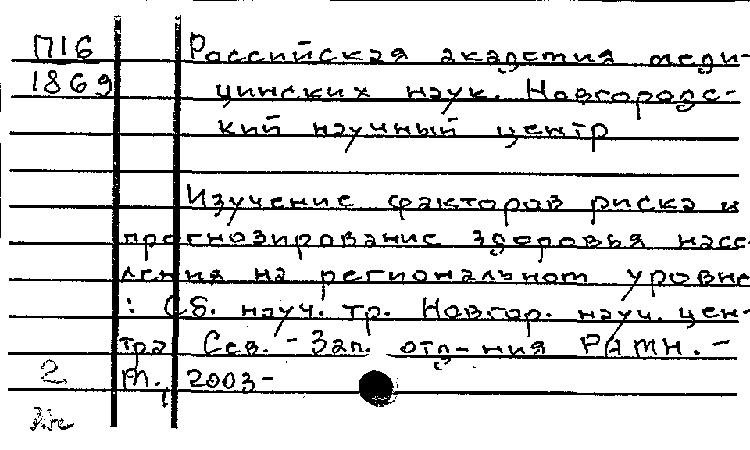 П16
1869
Российская академия меди-
цинских наук. Новгородс-
кий научный центр
Изучение факторов риска и
прогнозирование здоровья насе-
ления на региональном уровне
: Сб. науч. тр. Новгор. науч. цен-
тра Сев.-Зап. отд-ния РАМН. -
М., 2003-
2